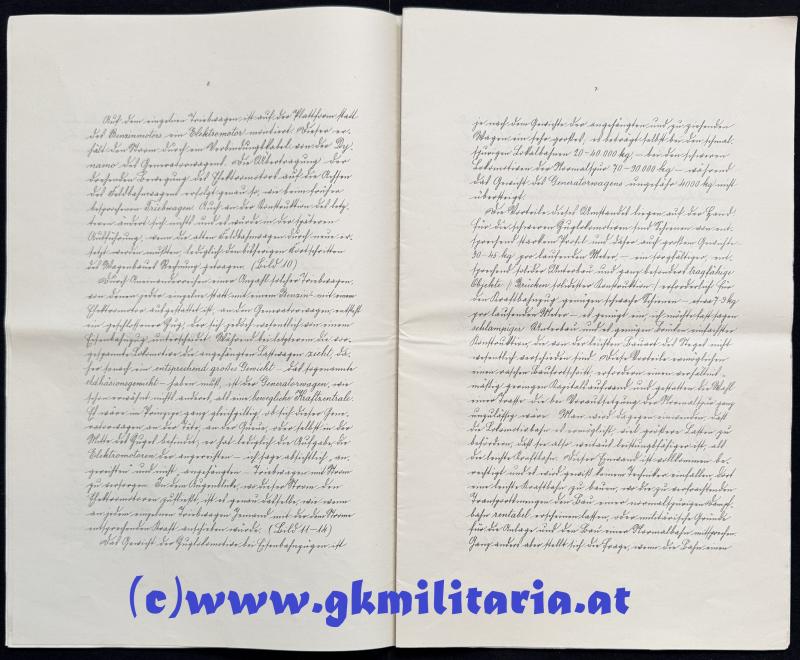 6
Auf dem einzelnen Triebwagen ist auf der Plattform statt
des Benzinmotors ein Elektromotor montiert. Dieser er-
hält den Strom durch ein Verbindungskabel von der Dy-
namo des Generatorwagens. Die Übertragung der
drehenden Bewegung des Elektromotors auf die Achsen
des Feldbahnwagens erfolgt genau so, wie beim früher
besprochenen Triebwagen. Auch an der Konstruktion des letz-
teren ändert sich nichts und es würde in der späteren
Ausführung, wenn die alten Feldbahnwagen durch neue er-
setzt werden müßten, lediglich den bisherigen Fortschritten
des Wagenbaues Rechnung getragen. (Bild 10)
Durch Aneinanderreihen einer Anzahl solcher Triebwagen,
von denen jeder einzelne statt mit einem Benzin- mit einem
Elektromotor ausgestattet ist, an den Generatorwagen, entsteht
ein geschlossener Zug, der sich jedoch wesentlich von einem
Eisenbahnzug unterscheidet. Während bei letzterem die vor-
gespannte Lokomotive die angehängten Lastwagen zieht, da-
her somit ein entsprechend großes Gewicht – das sogenannte
Adhäsionsgewicht – haben muß, ist der Generatorwagen, wie
schon erwähnt nichts anderes, als eine bewegliche Kraftzentrale.
Es wäre im Prinzipe ganz gleichgültig, ob sich dieser Gene-
ratorwagen an der Tete, an der Queue, oder selbst in der
Mitte des Zuges befindet, er hat lediglich die Aufgabe die
Elektromotoren der angereihten – ich sage absichtlich, an-
gereihten und nicht, angehängten – Triebwagen mit Strom
zu versorgen. In dem Augenblicke, wo dieser Strom den
Elektromotoren zufließt, ist es genau dasselbe, wie wenn
an jedem einzelnen Triebwagen Jemand mit der dem Strome
entsprechenden Kraft anschieben würde. (Bild 11–14)
Das Gewicht der Zuglokomotive bei Eisenbahnzügen ist
7
je nach dem Gewichte der angehängten und zu ziehenden
Wagen ein sehr großes, es beträgt selbst bei den schmal-
spurigen Lokalbahnen 20–40.000 kg, – bei den schweren
Lokomotiven der Normalspur 70–90.000 kg – während
das Gewicht des Generatorwagens ungefähr 4000 kg nicht
übersteigt.
Die Vorteile dieses Umstandes liegen auf der Hand:
für die schweren Zuglokomotiven sind Schienen von ent-
sprechend starkem Profil und daher auch großem Gewichte
30–45 kg per laufenden Meter – ein sorgfältiger, ent-
sprechend solider Unterbau und ganz besonders tragfähige
Objekte (Brücken solidester Konstruktion) erforderlich; für
den Kraftbahnzug genügen schwache Schienen – etwa 7–9 kg
per laufenden Meter – es genügt ein, ich möchte fast sagen
schlampiger Unterbau und es genügen Brücken einfachster
Konstruktion, die von der leichten Bauart des Stegs nicht
wesentlich verschieden sind. Diese Vorteile ermöglichen
einen raschen Baufortschritt, erfordern einen verhältnis-
mäßig geringen Kapitalaufwand und gestatten die Wahl
einer Trasse die bei Voraussetzung der Normalspur ganz
unzulässig wäre. Man wird dagegen einwenden, daß
die Lokomotivbahn es ermöglicht, viel größere Lasten zu
befördern, daß sie also weitaus leistungsfähiger ist, als
die leichte Kraftbahn. Dieser Einwand ist vollkommen be-
rechtigt und es wird gewiß keinem Techniker einfallen dort
eine leichte Kraftbahn zu bauen, wo die zu verfrachtenden
Transportmengen den Bau einer normalspurigen Dampf-
bahn rentabel erscheinen lassen, oder militärische Gründe
für die Anlage und den Bau einer Normalbahn mitsprechen.
Ganz anders aber stellt sich die Frage, wenn die Bahn einen
(c)www.gkmilitaria.at